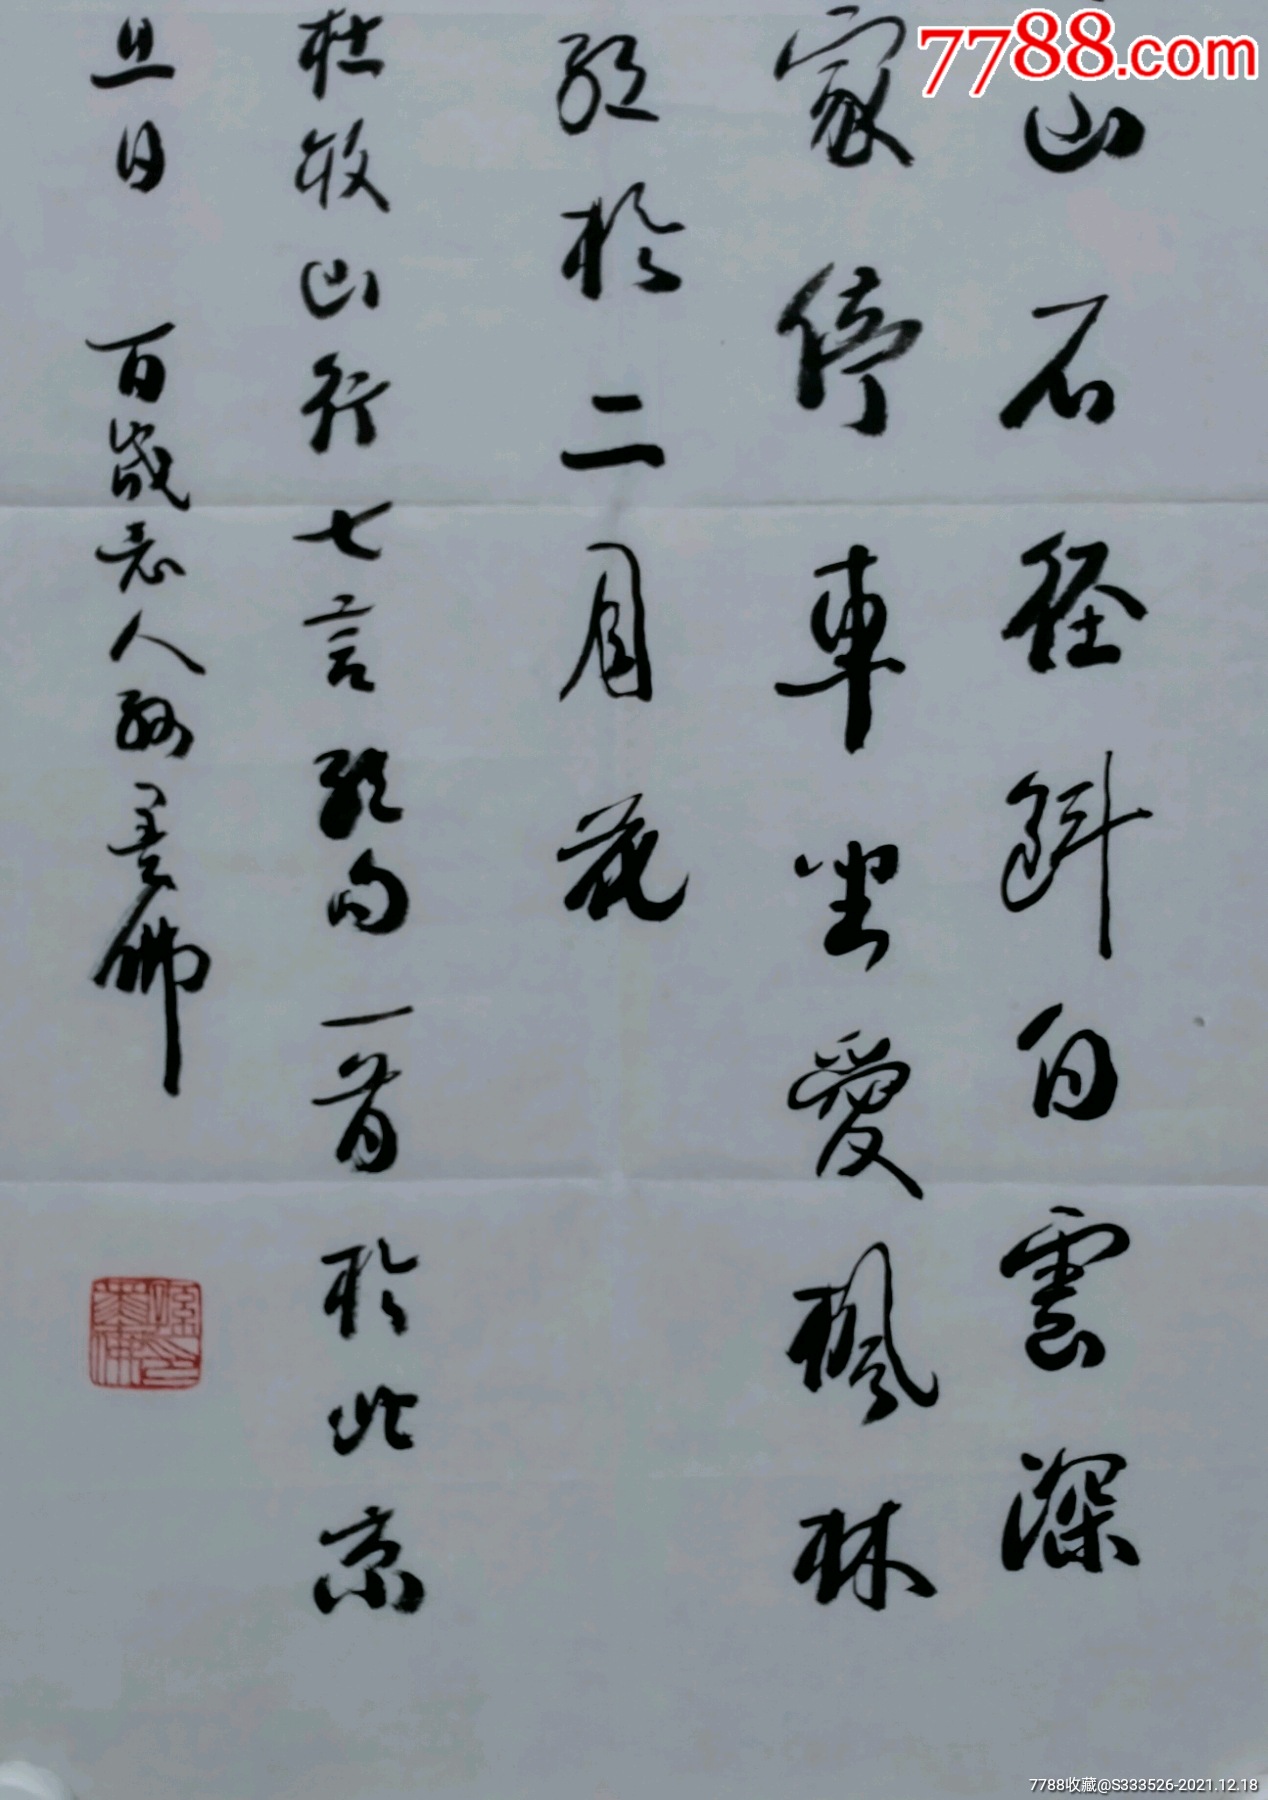 山石径斜白雲深
家停車坐愛楓林
紅於二月花
杜牧山行七言絶句一首於北京
旦日 百歲老人孙墨佛
7788.com
7788收藏@S333526-2021.12.18